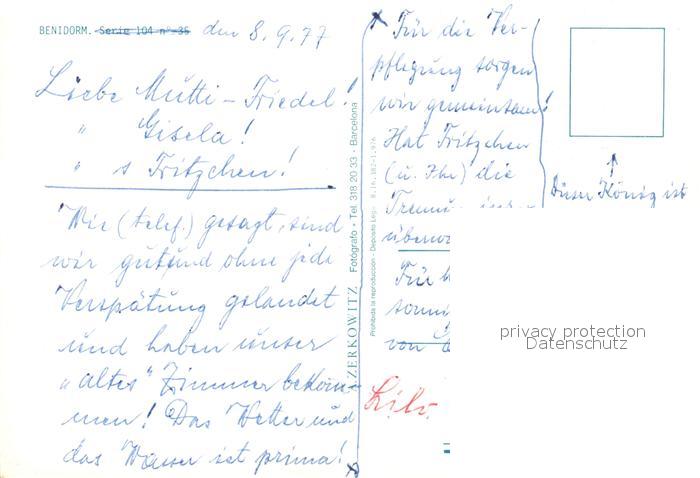 BENIDORM. Serie 104 nº 35 den 8.9.77
Liebe Mutti - Friedel!
" Gisela!
" s Fritzchen!
Wie (telef.) gesagt, sind
wir gut und ohne jede
Verspätung gelandet
und haben unser
"altes" Zimmer bekom-
men! Das Wetter und
das Wasser ist prima!
ZERKOWITZ Fotógrafo - Tel. 318 20 33 - Barcelona
Prohibida la reproducción - Depósito Leg.
Für die Ver-
pflegung sorgen
wir gemeinsam!
Hat Fritzchen
(u. Ihr) die
Für
von
Dieser König ist
privacy protection
Datenschutz